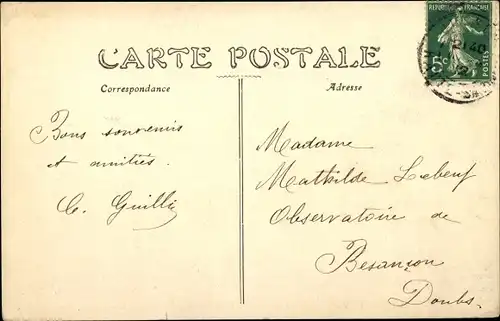 CARTE POSTALE
Correspondance
Bons souvenirs
et amitiés.
Adresse
Madame
Mathilde Lebeuf
Observatoire de
Besançon
Doubs.
REPUBLIQUE FRANÇAISE
5c
POSTES